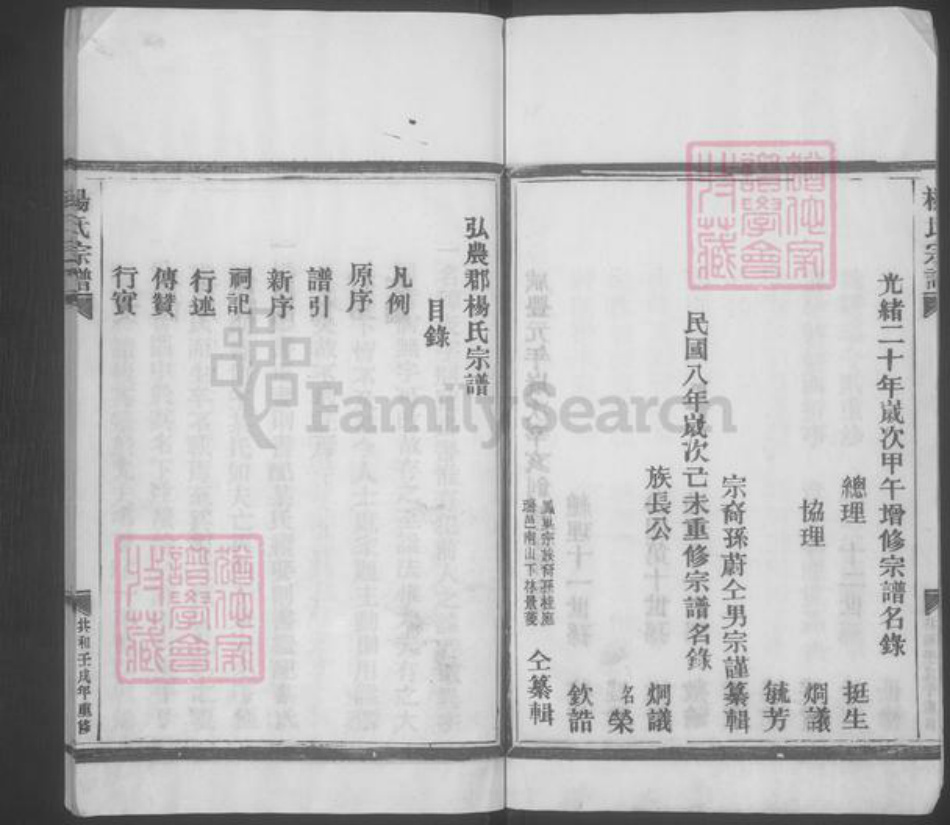 楊氏宗譜
光緒二十年歲次甲午增修宗譜名錄
總理 挺生
協理 烱議
毓芳
宗裔孫蔚仝男宗謹纂輯
民國八年歲次己未重修宗譜名錄
族長公 烱議
名榮
欽誥
瑞邑南山下林景菱
仝纂輯
弘農郡楊氏宗譜
目錄
凡例
原序
譜引
新序
祠記
行述
傳贊
行實
楊氏宗譜
共和壬戌年重修
FamilySearch
譜學會
收藏
譜學會
收藏